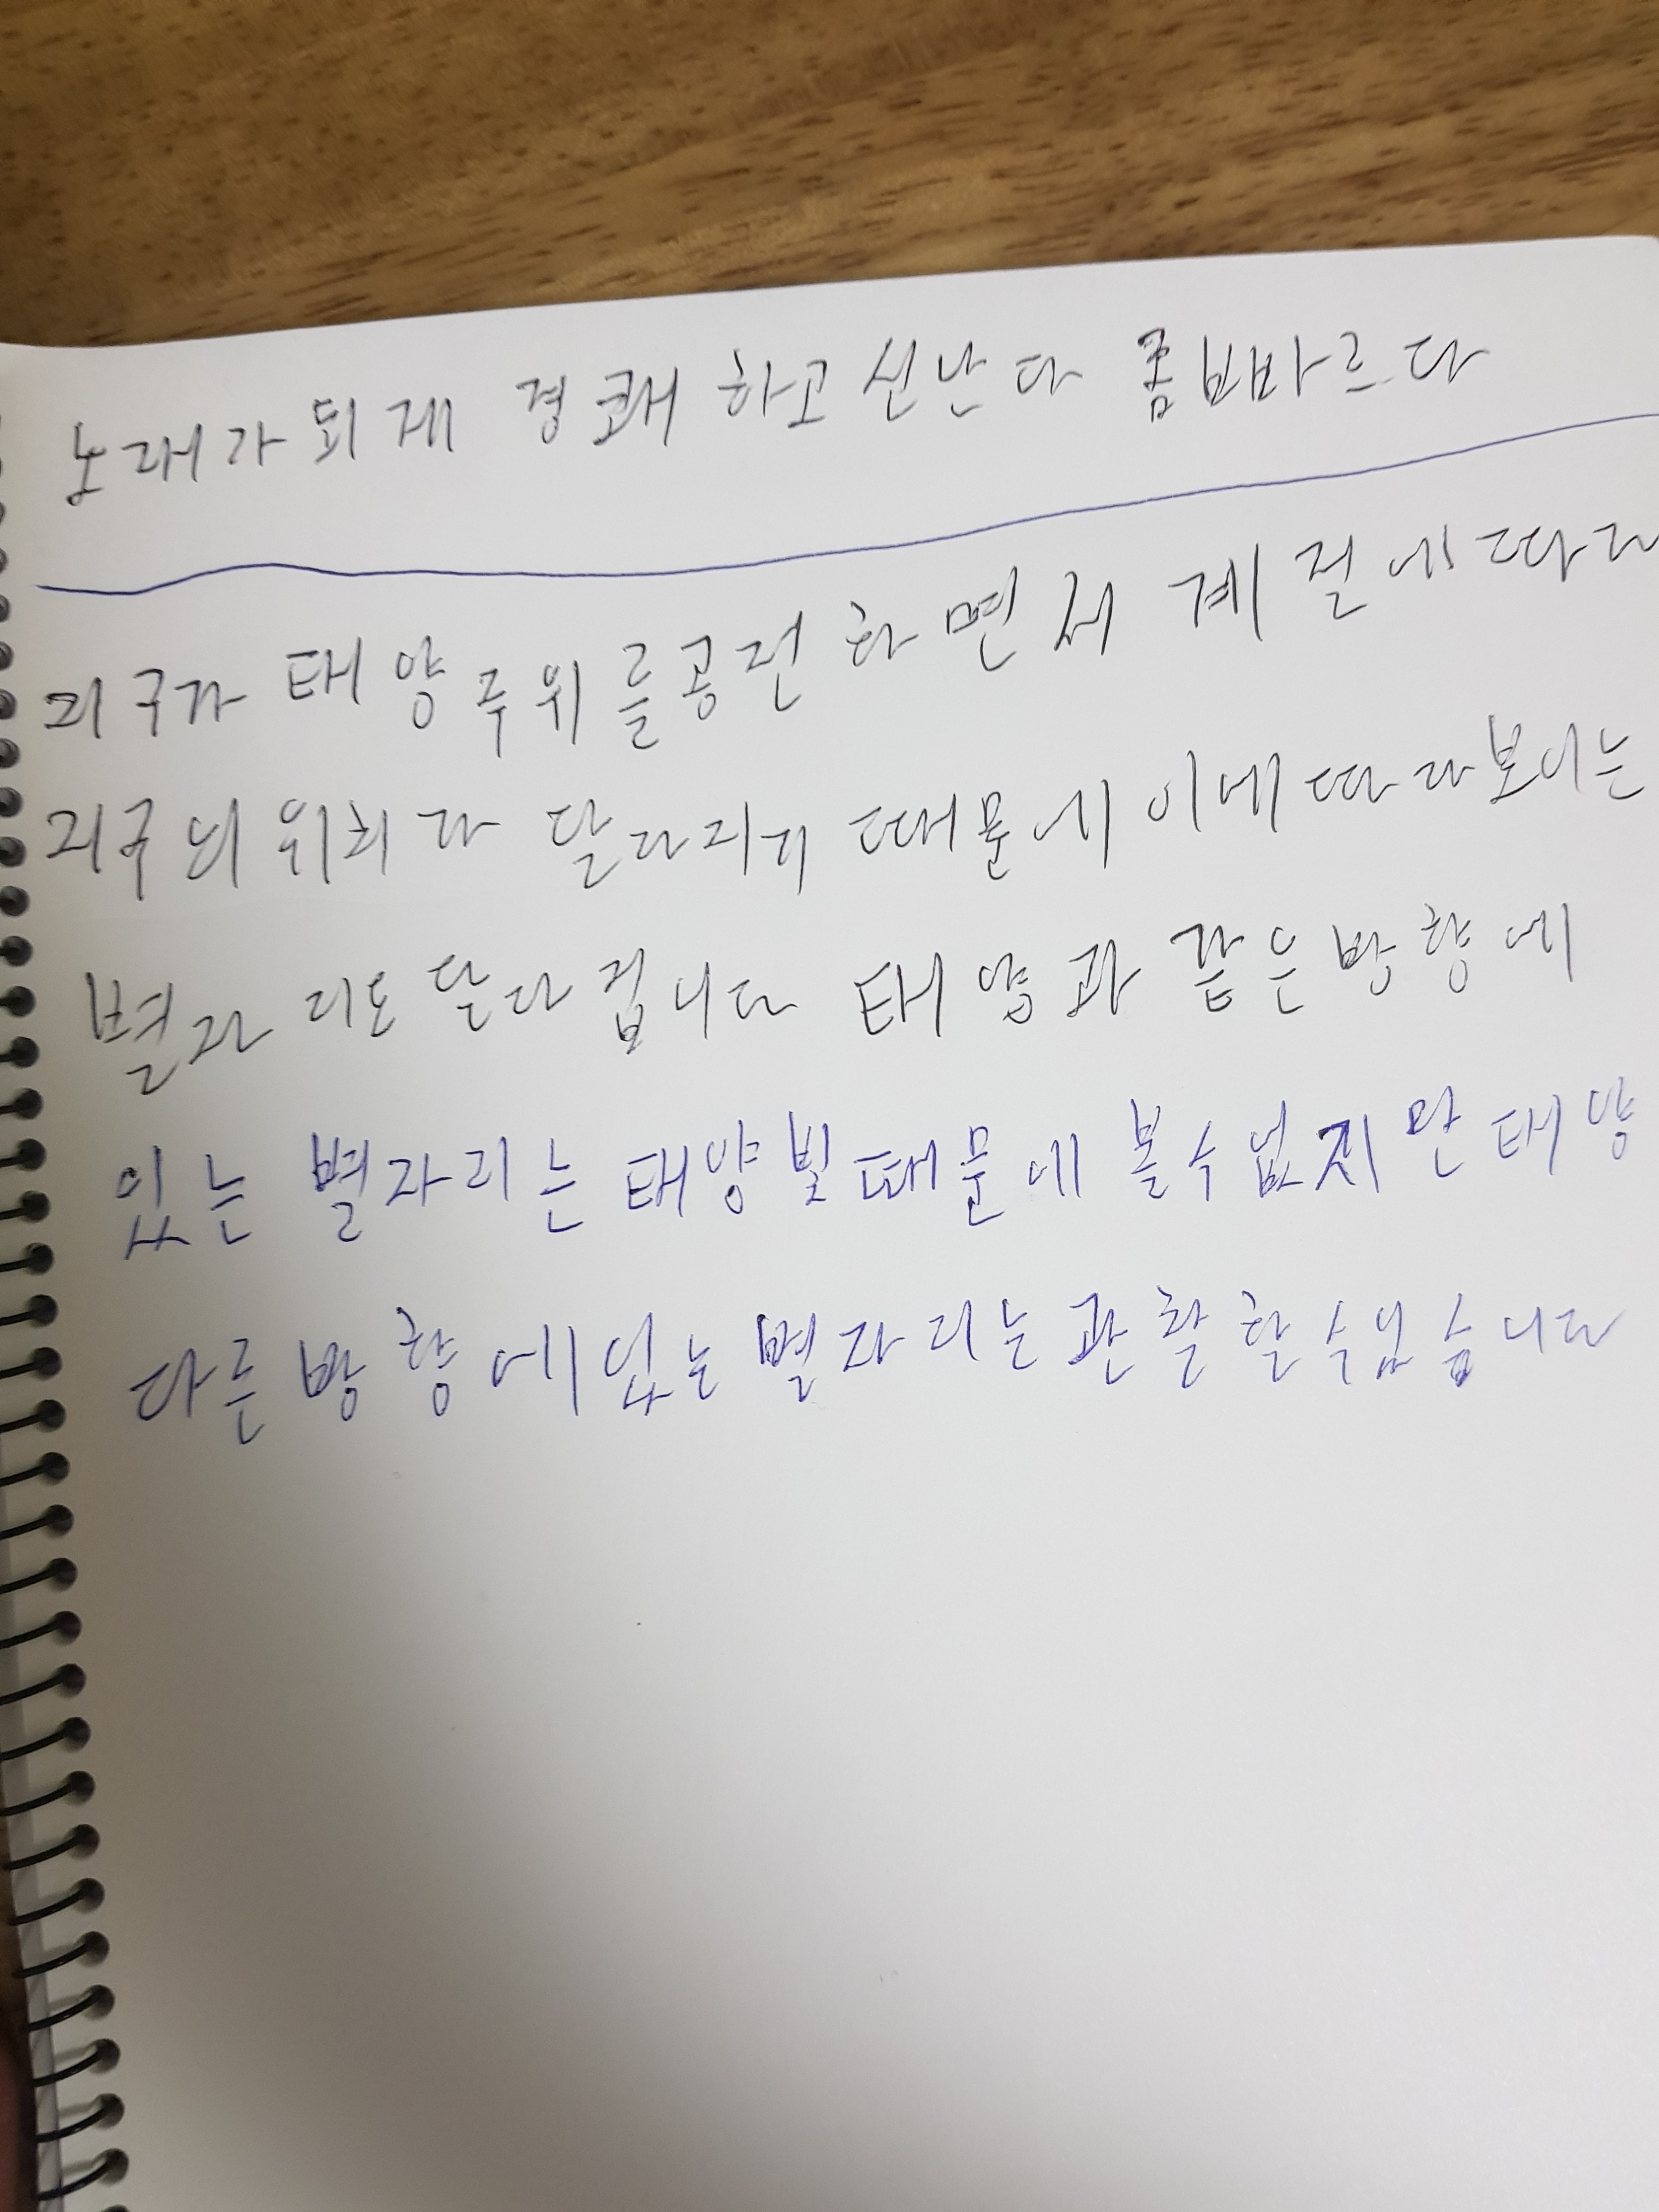 노래가 되게 경쾌하고 신난다 좀 삐바르다
지구가 태양 주위를 공전하면서 계절에 따라
지구의 위치가 달라지기 때문에 이에 따라 보이는
별자리도 달라집니다 태양과 같은 방향에
있는 별자리는 태양빛 때문에 볼 수 없지만 태양
다른 방향에 있는 별자리는 관찰할 수 있습니다